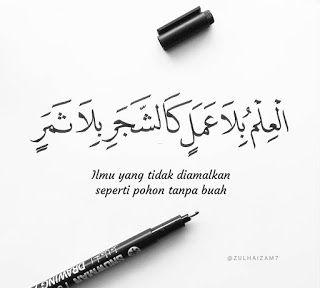 الْعِلْمُ بِلَا عَمَلٍ كَالشَّجَرِ بِلَا ثَمَرٍ
Ilmu yang tidak diamalkan
seperti pohon tanpa buah
@ZULHAIZAM7
SNOWMAN
DRAWING